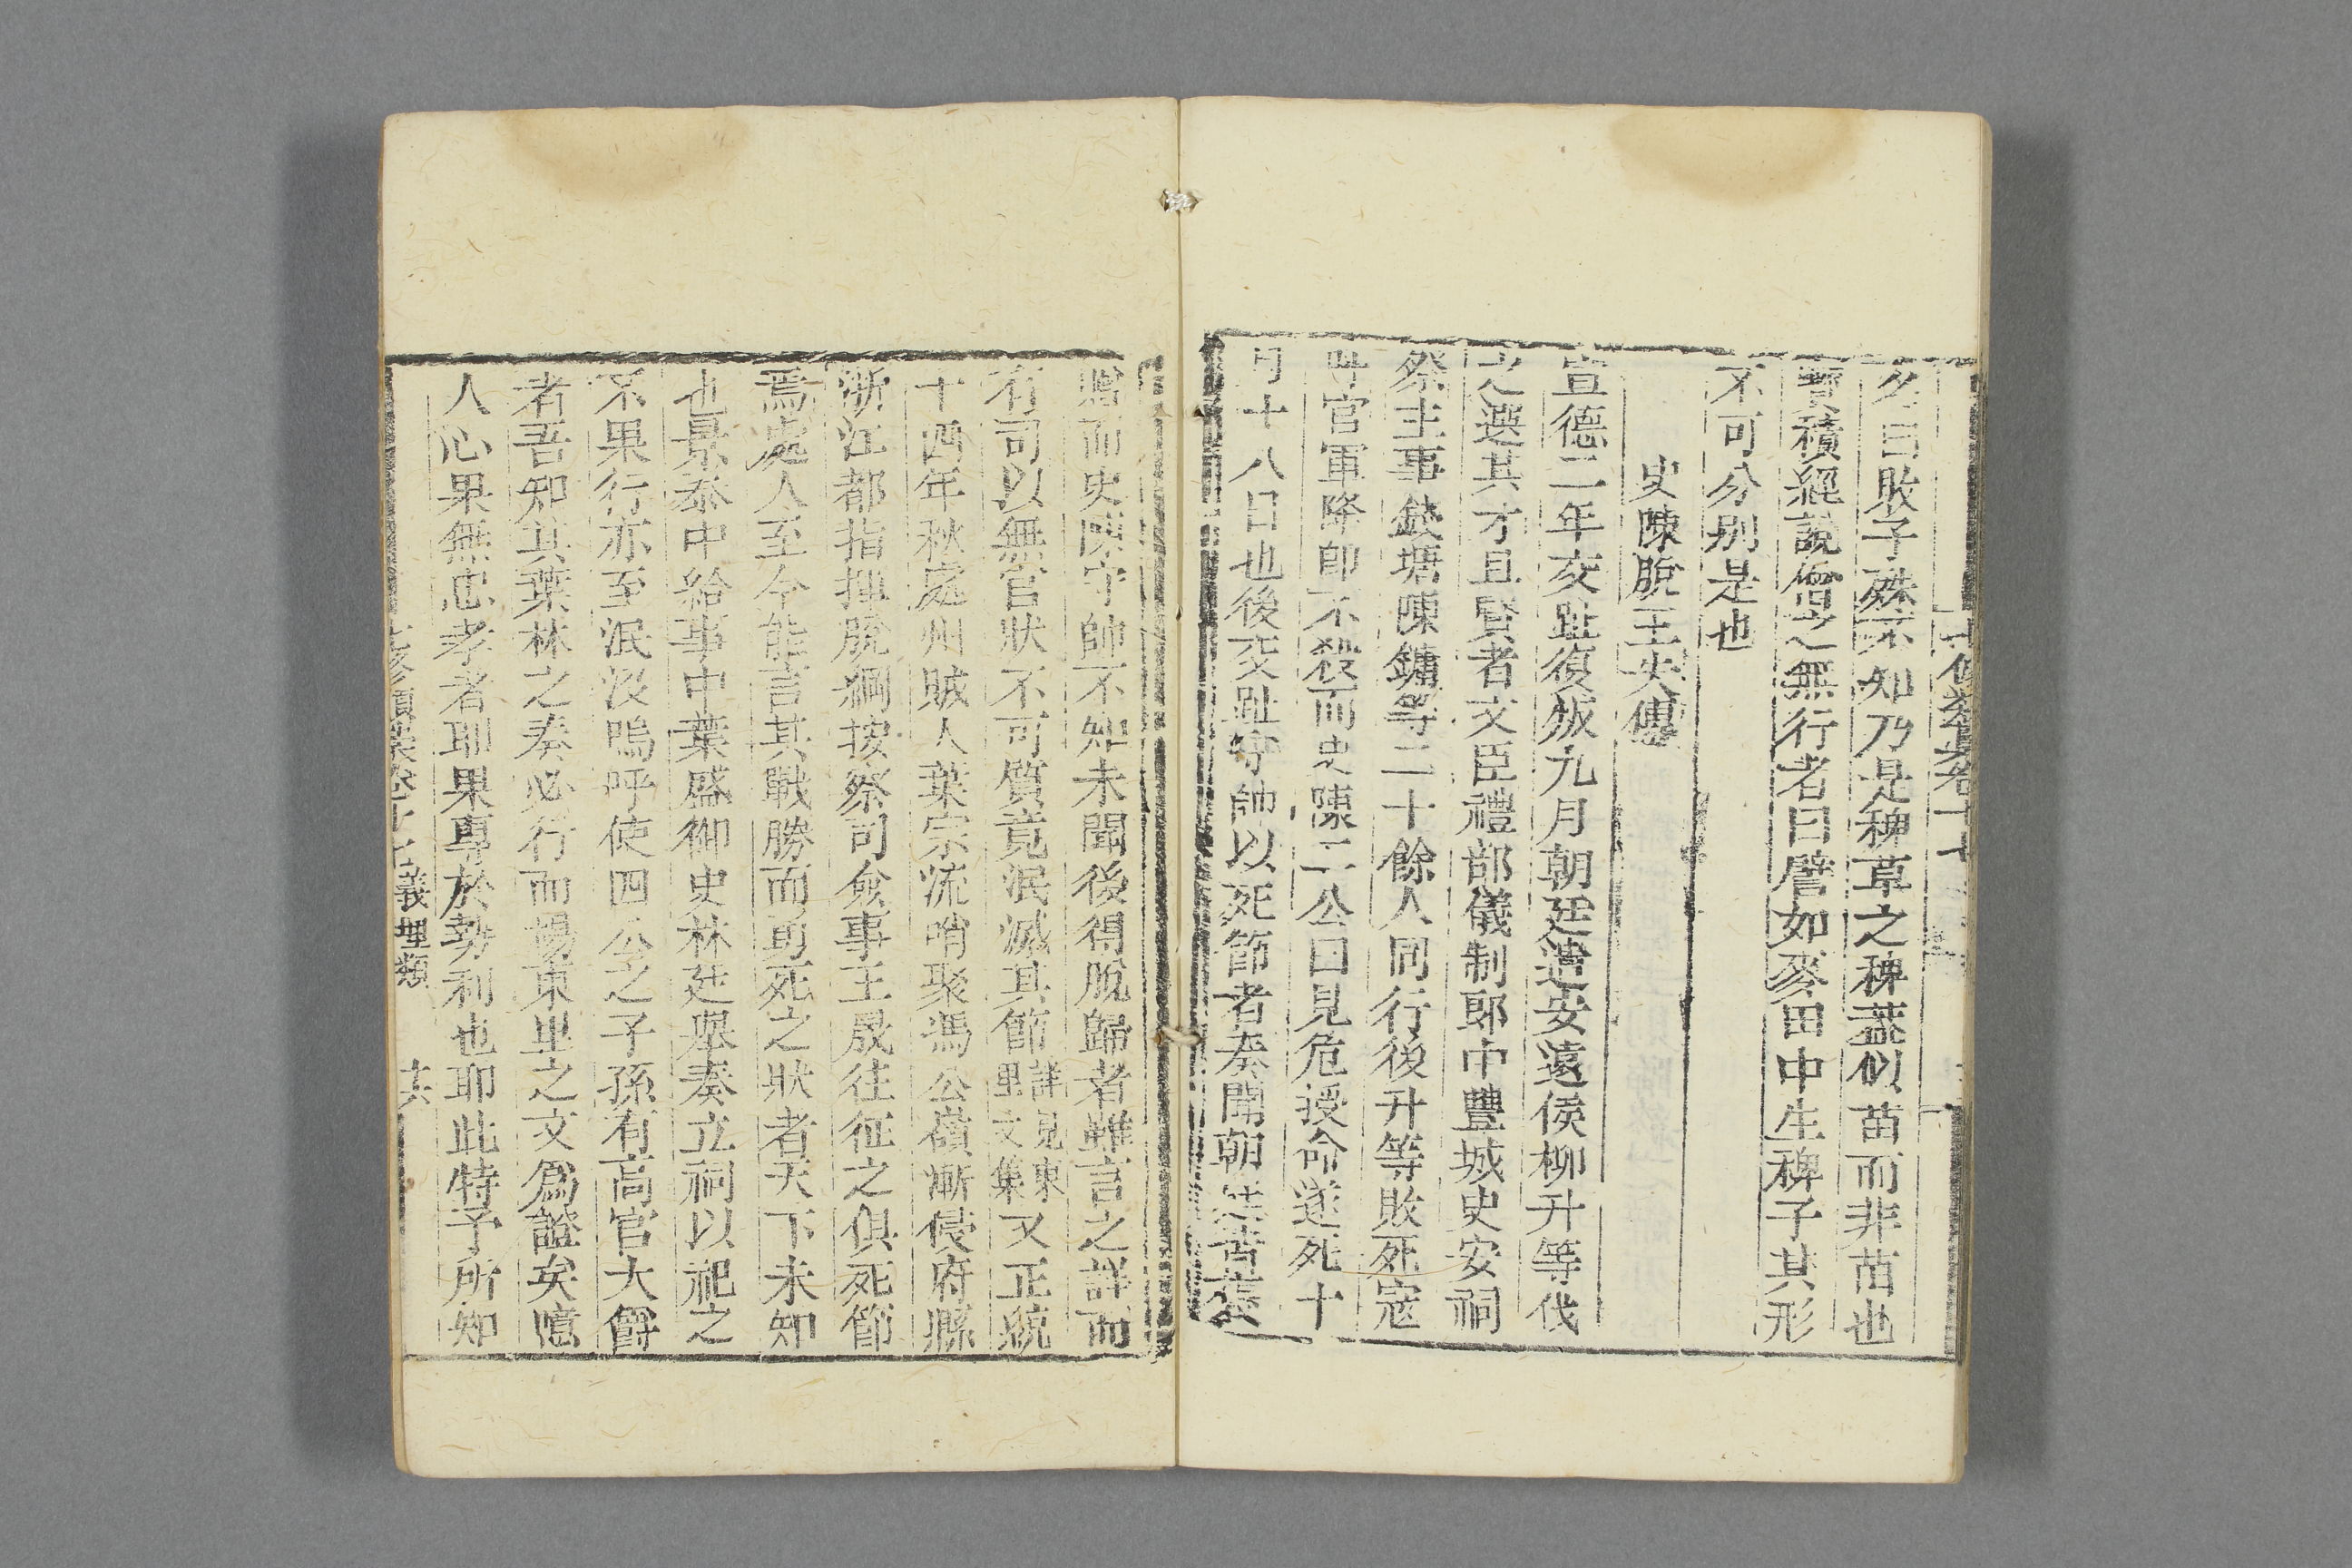 七修類藁卷十七
多曰敗子殊不知乃是稗草之稗蓋似苗而非苗也
寶積經說僧之無行者曰譬如麥田中生稗子其形
不可分別是也
史陳脫王失傳
宣德二年交趾復叛九月朝廷遣安遠侯柳升等伐
之選其才且賢者文臣禮部儀制郎中豐城史安祠
祭主事錢塘陳鏞等二十餘人同行後升等敗死寇
呼官軍降卽不殺而史陳二公曰見危授命遂死十
月十八日也後交趾守帥以死節者奏聞朝廷皆褒
贈而史陳守帥不知未聞後得脫歸者雖言之詳而
有司以無官狀不可質竟泯滅其節詳見東里文集又正統
十四年秋處州賊人葉宗流哨聚馮公嶺漸侵府縣
浙江都指揮脫綱按察司僉事王晟往征之俱死節
焉處人至今能言其戰勝而勇死之狀者天下未知
也景泰中給事中葉盛御史林廷舉奏立祠以祀之
不果行亦至泯沒嗚呼使四公之子孫有高官大爵
者吾知其葉林之奏必行而楊東里之文爲證矣噫
人心果無忠孝者耶果專於勢利也耶此特予所知
七修類藁卷十七 義理類 十六